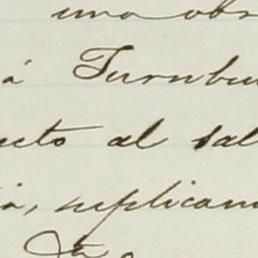 una obr
á Turnbu
ucto al sal
á, suplican